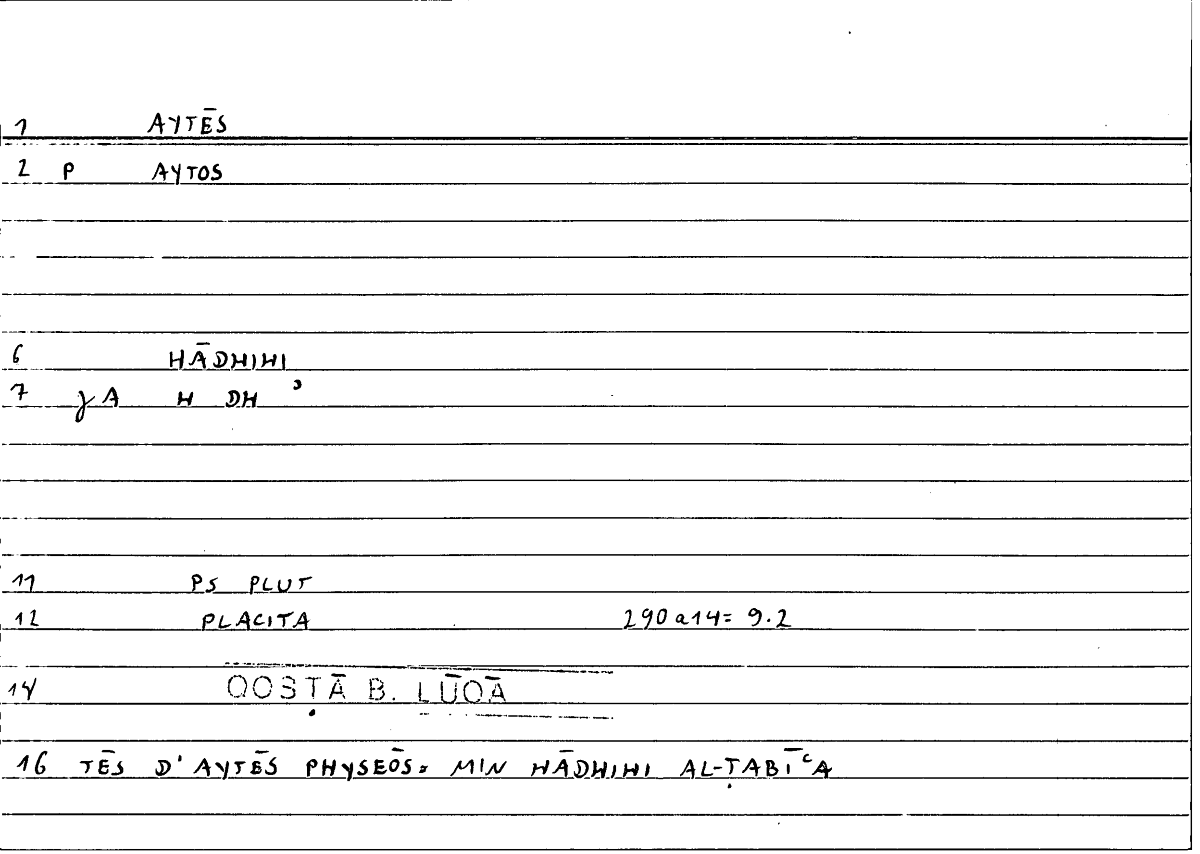 1 AYTĒS
2 P AYTOS
6 HĀDHIHI
7 γA H DH ʾ
11 PS PLUT
12 PLACITA 290a14= 9.2
14 QOSṬĀ B. LŪQĀ
16 TĒS D' AYTĒS PHYSEŌS= MIN HĀDHIHI AL-ṬABĪʿA